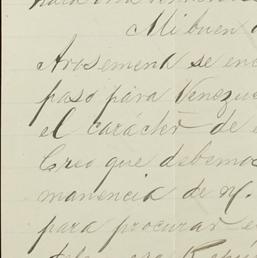 Mi buen
Arosemena se en
paso para Venezue
el carácter de e
Creo que debemos
manencia de M.
para procurar e